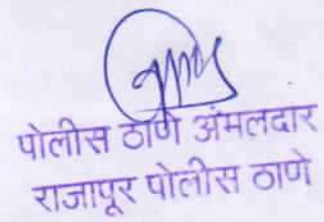 पोलीस ठाणे अंमलदार
राजापूर पोलीस ठाणे